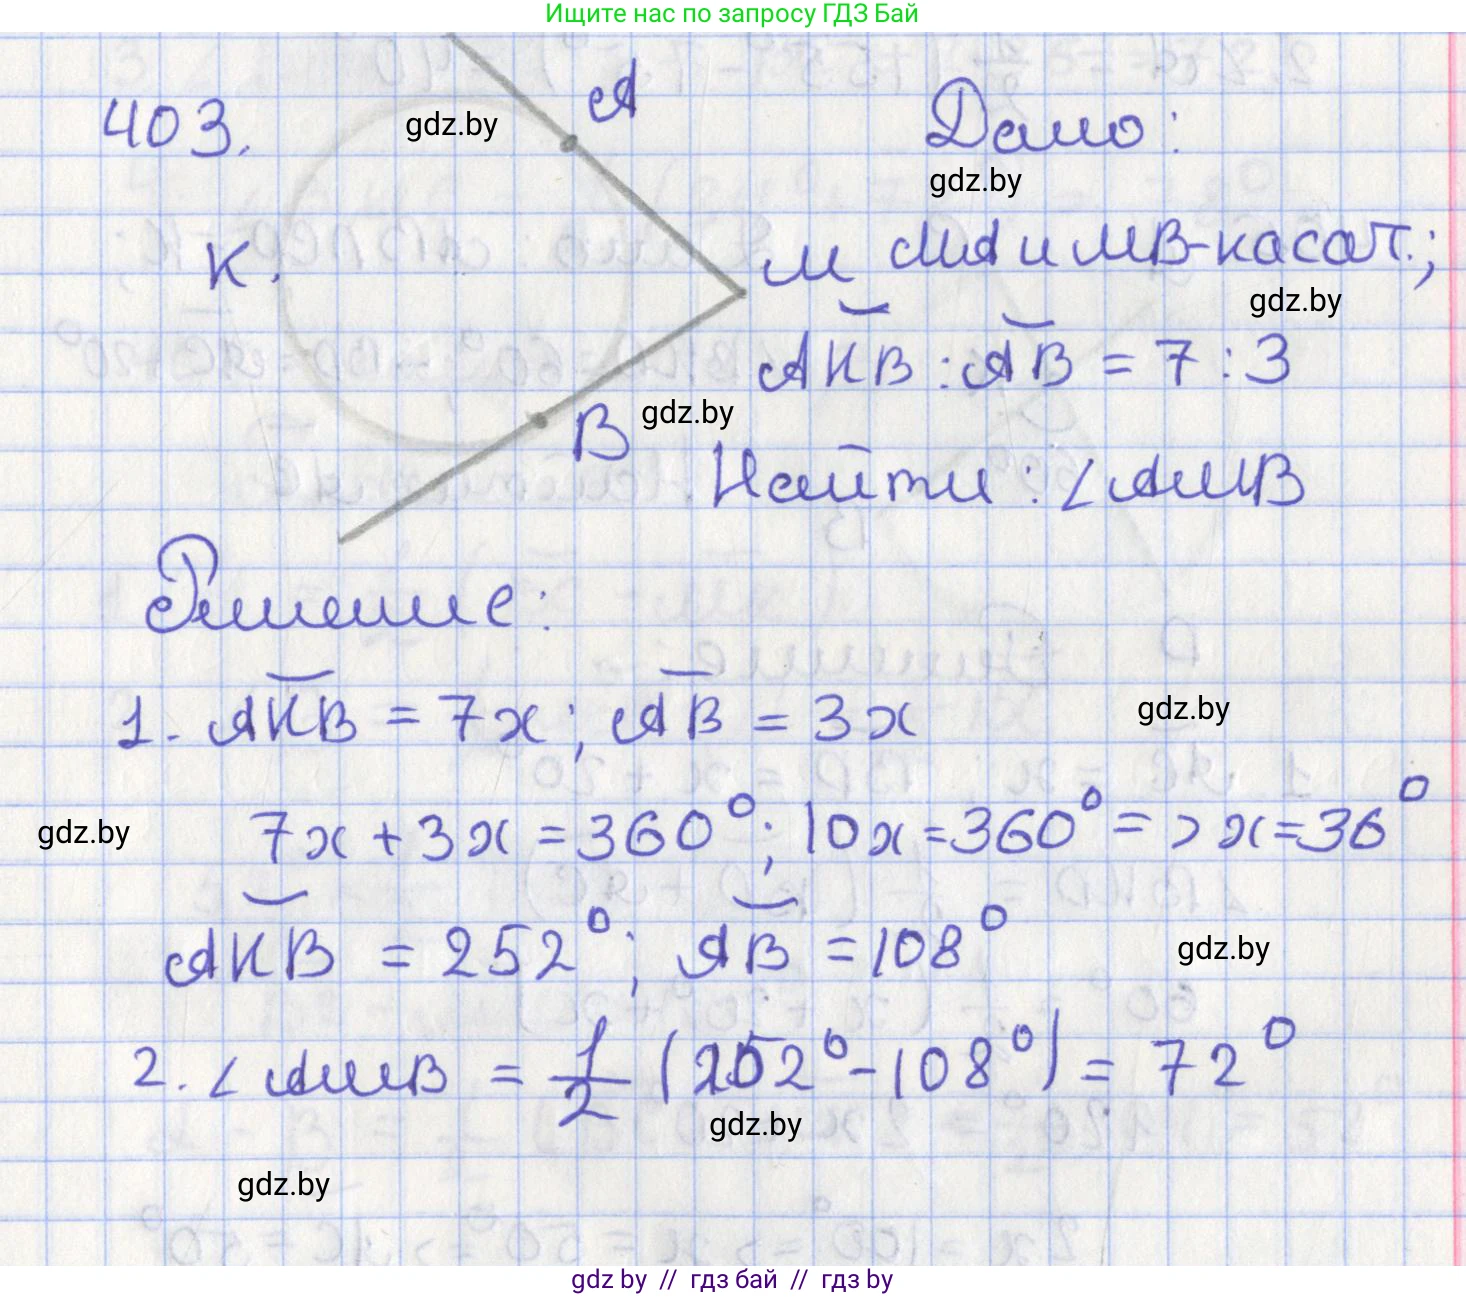 Ищите нас по запросу ГДЗ Бай
403.
A
gdz.by
Дано:
gdz.by
K
M
MA и MB-касат.;
gdz.by
AKB : AB = 7 : 3
B
gdz.by
Найти: ∠AMB
Решение:
1. AKB = 7x; AB = 3x
gdz.by
gdz.by
7x + 3x = 360°; 10x = 360° => x = 36°
AKB = 252°; AB = 108°
gdz.by
2. ∠AMB = 1/2 (252° - 108°) = 72°
gdz.by
gdz.by
gdz by // гдз бай // гдз by